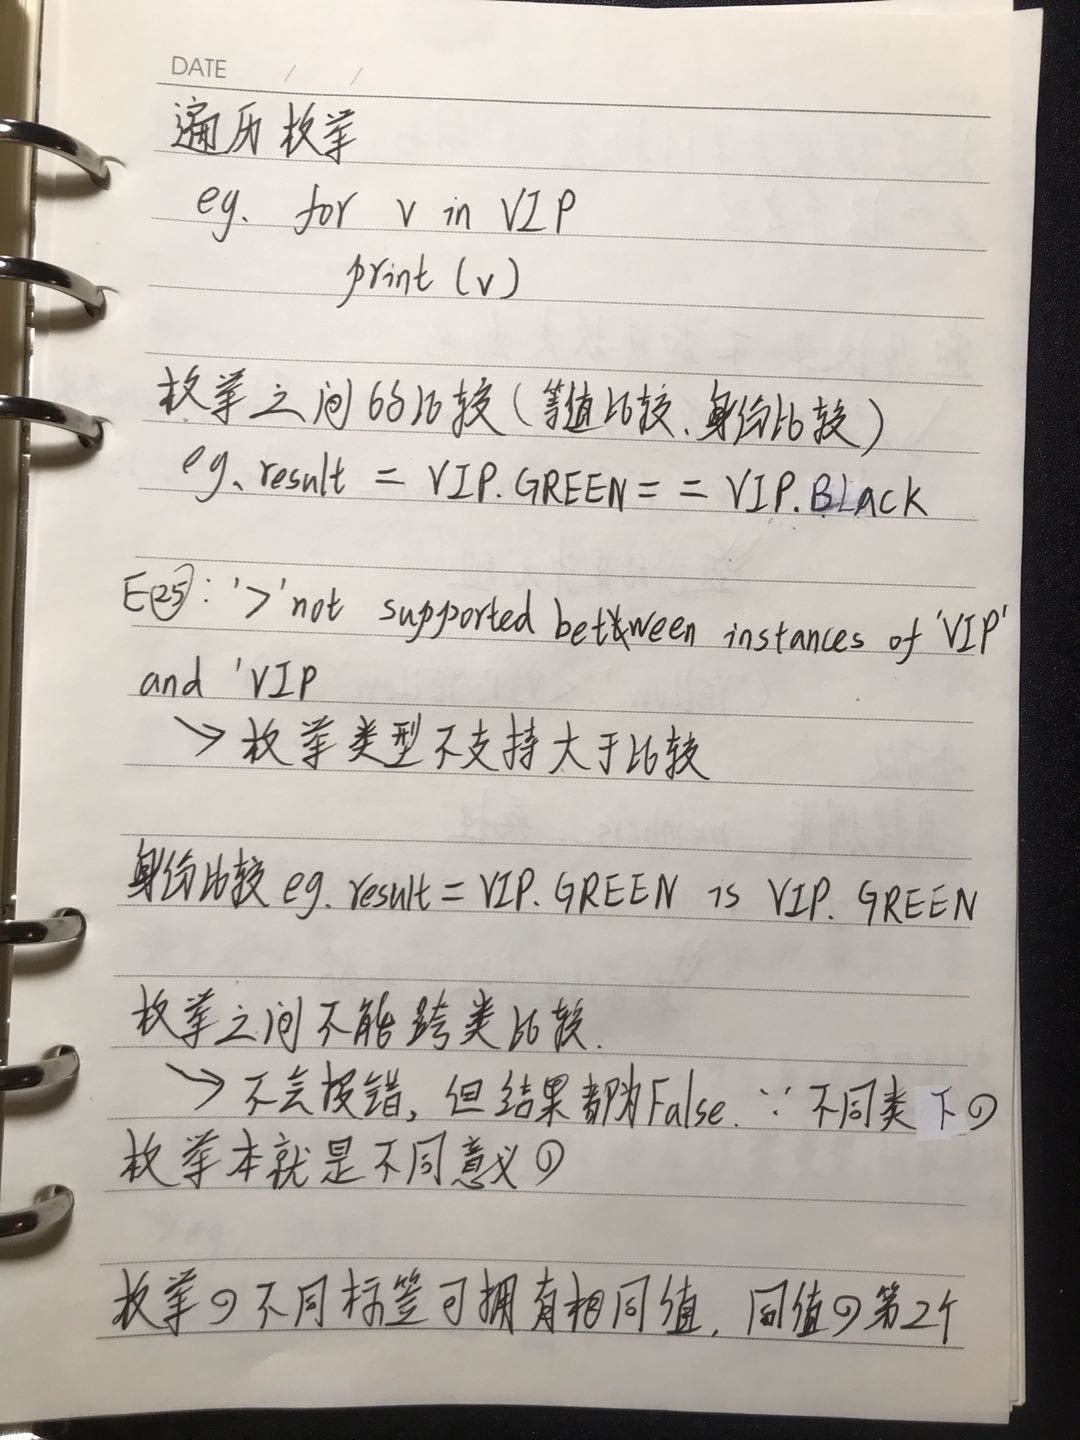 DATE / /
遍历枚举
eg. for v in VIP
print (v)
枚举之间的比较(等值比较、身份比较)
eg. result = VIP.GREEN = = VIP.BLack
E㉕: '>' not supported between instances of 'VIP'
and 'VIP
→ 枚举类型不支持大于比较
身份比较 eg. result = VIP. GREEN is VIP. GREEN
枚举之间不能跨类比较.
→ 不会报错, 但结果都为False. ∵ 不同类下の
枚举本就是不同意义の
枚举の不同标签可拥有相同值, 同值の第2个